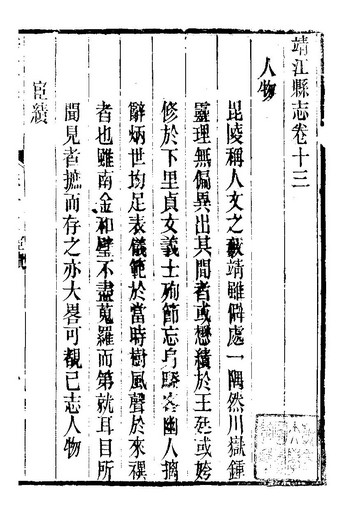 靖江縣志卷十三
人物
毘陵稱人文之藪靖雖僻處一隅然川嶽鍾
靈理無偏異出其間者或懋績於王廷或姱
修於下里貞女義士殉節忘身騷客幽人摛
辭炳世均足表儀範於當時樹風聲於來禩
者也雖南金和璧不盡蒐羅而第就耳目所
聞見者摭而存之亦大畧可覩已志人物
宦績